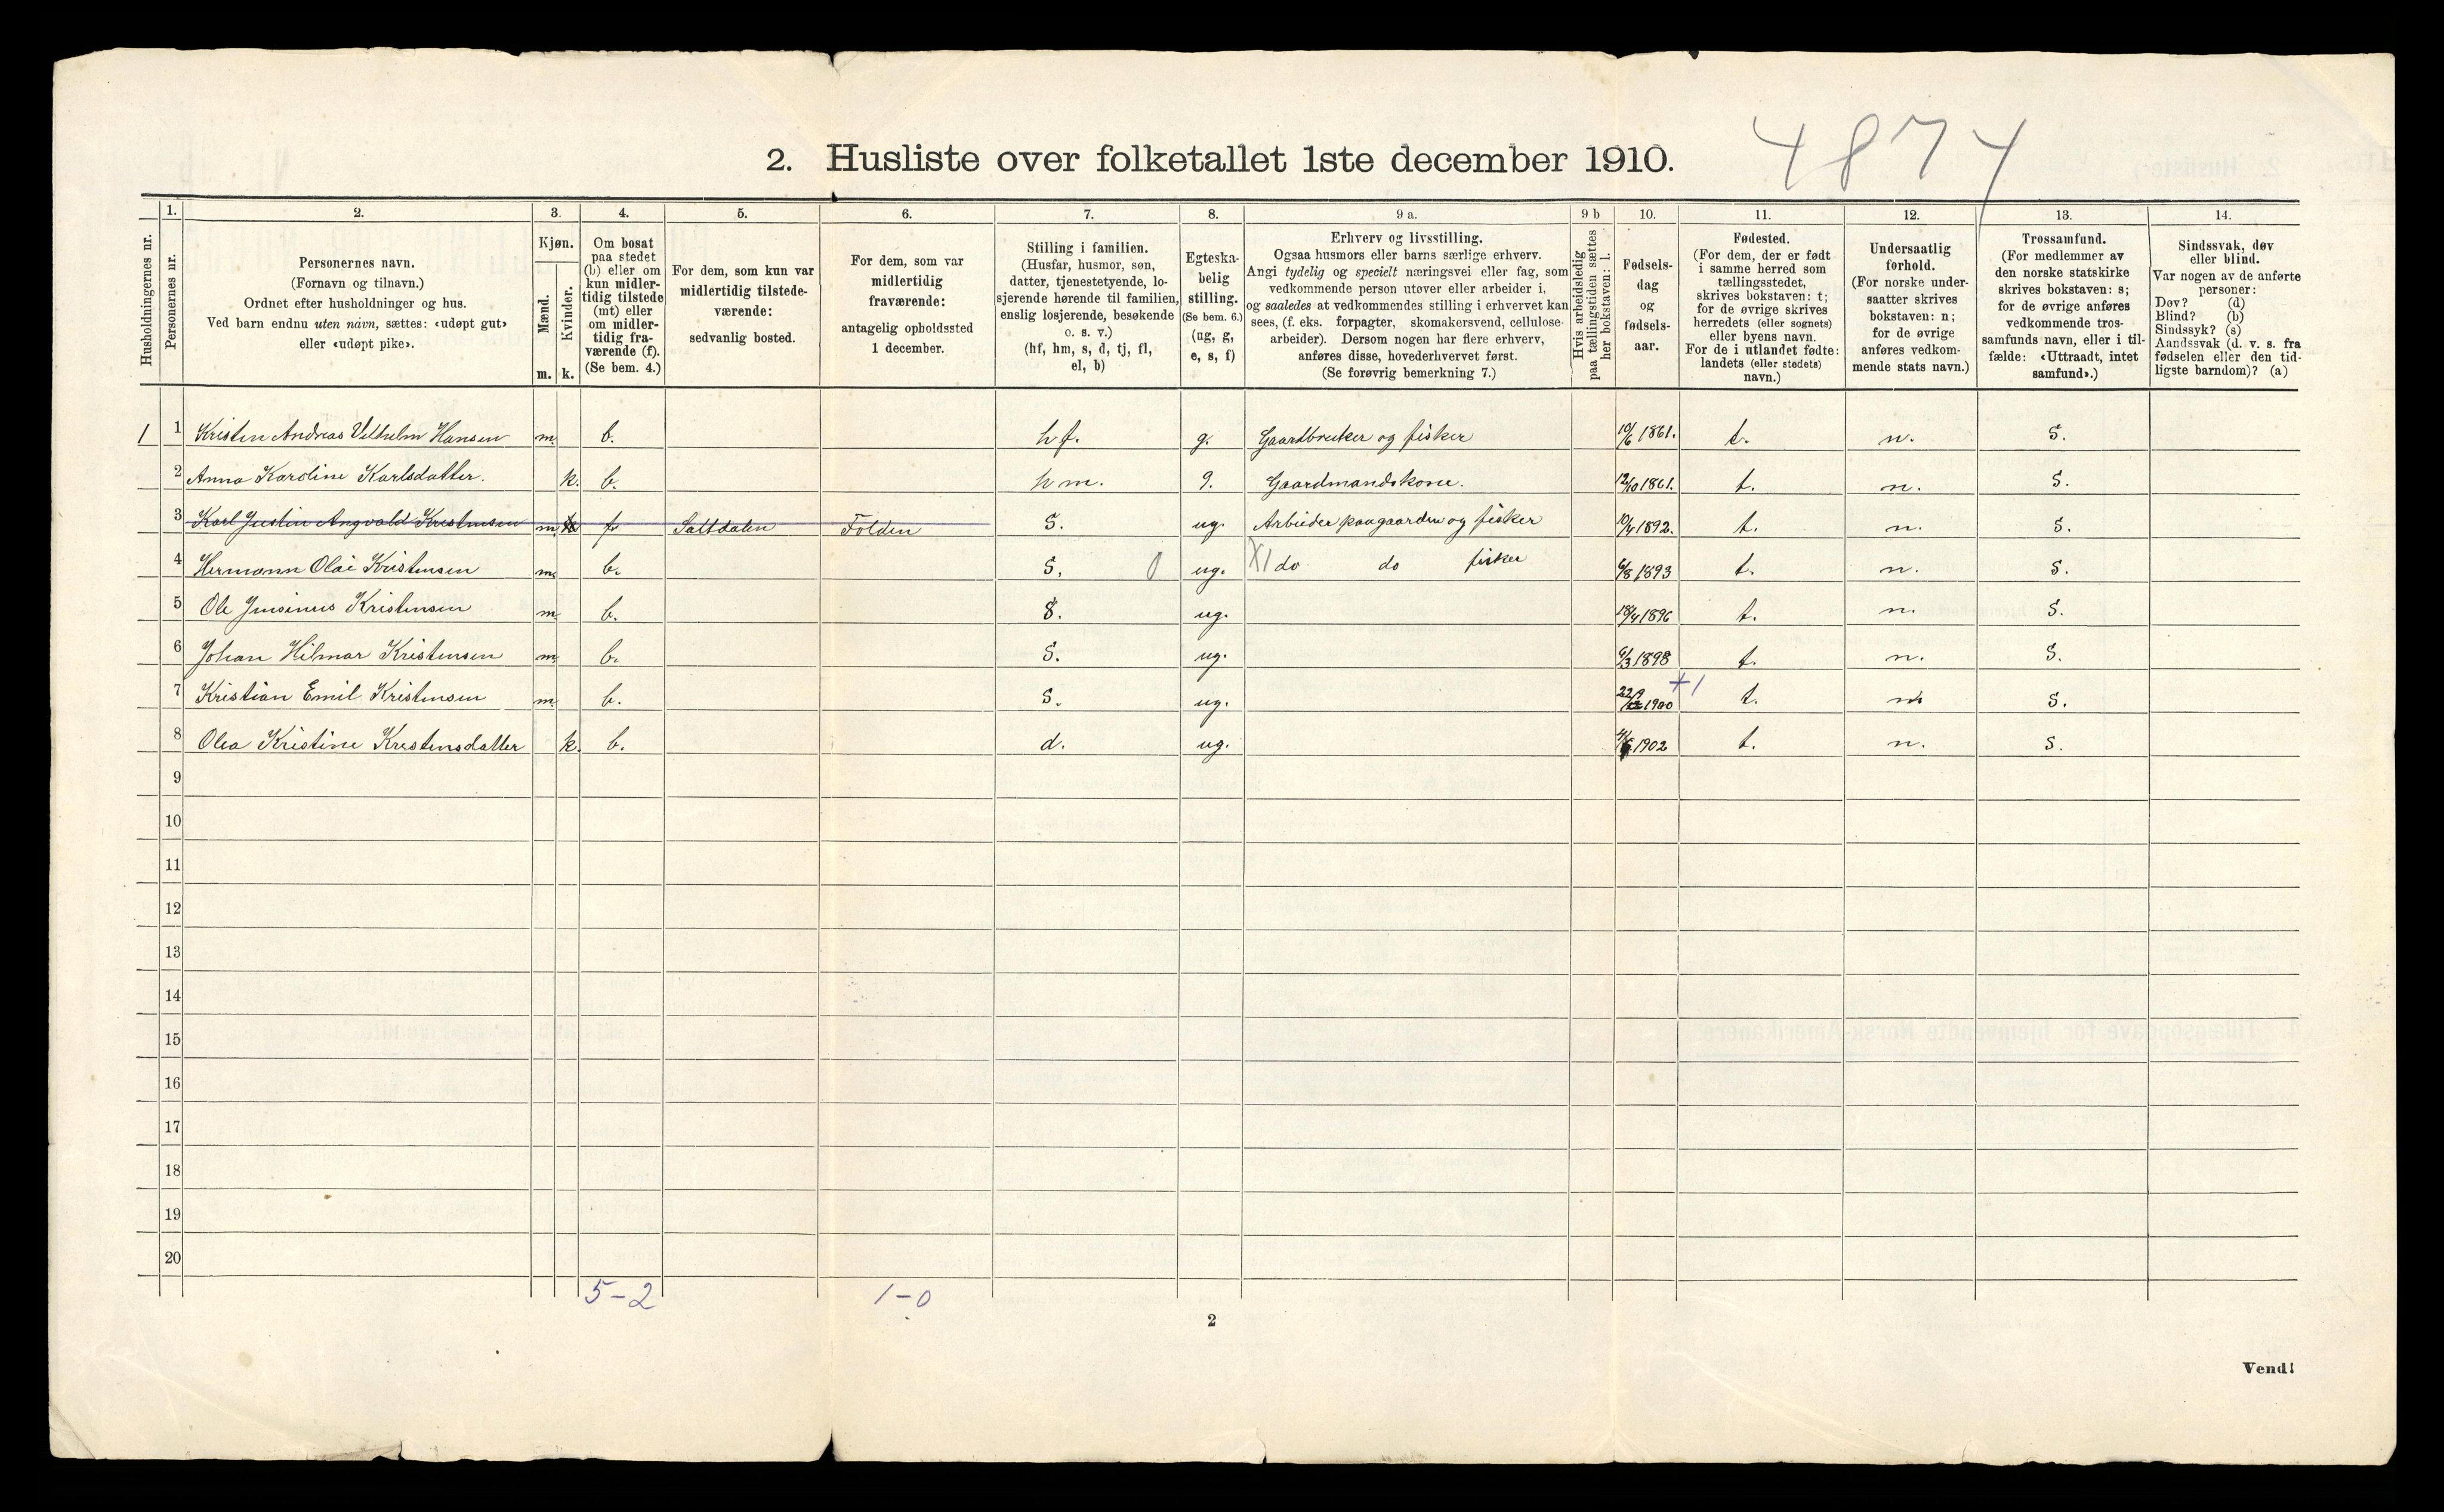 4874
2. Husliste over folketallet 1ste december 1910.
Husholdningernes nr.
1.
Personernes nr.
2.
Personernes navn.
(Fornavn og tilnavn.)
Ordnet efter husholdninger og hus.
Ved barn endnu uten navn, sættes: «udøpt gut»
eller «udøpt pike».
3.
Kjøn.
Mænd.
Kvinder.
m. k.
4.
Om bosat
paa stedet
(b) eller om
kun midler-
tidig tilstede
(mt) eller
om midler-
tidig fra-
værende (f).
(Se bem. 4.)
5.
For dem, som kun var
midlertidig tilstede-
værende:
sedvanlig bosted.
6.
For dem, som var
midlertidig
fraværende:
antagelig opholdssted
1 december.
7.
Stilling i familien.
(Husfar, husmor, søn,
datter, tjenestetyende, lo-
sjerende hørende til familien,
enslig losjerende, besøkende
o. s. v.)
(hf, hm, s, d, tj, fl,
el, b)
8.
Egteska-
belig
stilling.
(Se bem. 6.)
(ug, g,
e, s, f)
9 a.
Erhverv og livsstilling.
Ogsaa husmors eller barns særlige erhverv.
Angi tydelig og specielt næringsvei eller fag, som
vedkommende person utøver eller arbeider i,
og saaledes at vedkommendes stilling i erhvervet kan
sees, (f. eks. forpagter, skomakersvend, cellulose-
arbeider). Dersom nogen har flere erhverv,
anføres disse, hovederhvervet først.
(Se forøvrig bemerkning 7.)
9 b
Hvis arbeidsledig
paa tællingstiden sættes
her bokstaven: l.
10.
Fødsels-
dag
og
fødsels-
aar.
11.
Fødested.
(For dem, der er født
i samme herred som
tællingsstedet,
skrives bokstaven: t;
for de øvrige skrives
herredets (eller sognets)
eller byens navn.
For de i utlandet fødte:
landets (eller stedets)
navn.)
12.
Undersaatlig
forhold.
(For norske under-
saatter skrives
bokstaven: n;
for de øvrige
anføres vedkom-
mende stats navn.)
13.
Trossamfund.
(For medlemmer av
den norske statskirke
skrives bokstaven: s;
for de øvrige anføres
vedkommende tros-
samfunds navn, eller i til-
fælde: «Uttraadt, intet
samfund».)
14.
Sindssvak, døv
eller blind.
Var nogen av de anførte
personer:
Døv? (d)
Blind? (b)
Sindssyk? (s)
Aandssvak (d. v. s. fra
fødselen eller den tid-
ligste barndom)? (a)
1 1 Kristen Andreas Vilhelm Hansen m. b. hf. g. Gaardbruker og fisker 10/6 1861. t. n. S.
2 Anna Karoline Karlsdatter. k. b. hm. g. Gaardmandskone. 12/10 1861. t. n. S.
3 Karl Justin Angvald Kristensen m. f. Saltdalen Folden S. ug. Arbeider paa gaarden og fisker 10/4 1892. t. n. S.
4 Hermann Olai Kristensen m. b. S. 0 ug. X1 do do fisker 6/8 1893 t. n. S.
5 Ole Jensinus Kristensen m. b. S. ug. 18/4 1896 t. n. S.
6 Johan Hilmar Kristensen m. b. S. ug. 9/3 1898 t. n. S.
7 Kristian Emil Kristensen m. b. S. ug. 1900 +1 t. n. S.
8 Olea Kristine Kristensdatter k. b. d. ug. 1902 t. n. S.
9
10
11
12
13
14
15
16
17
18
19
20
5-2
1-0
2
Vend!